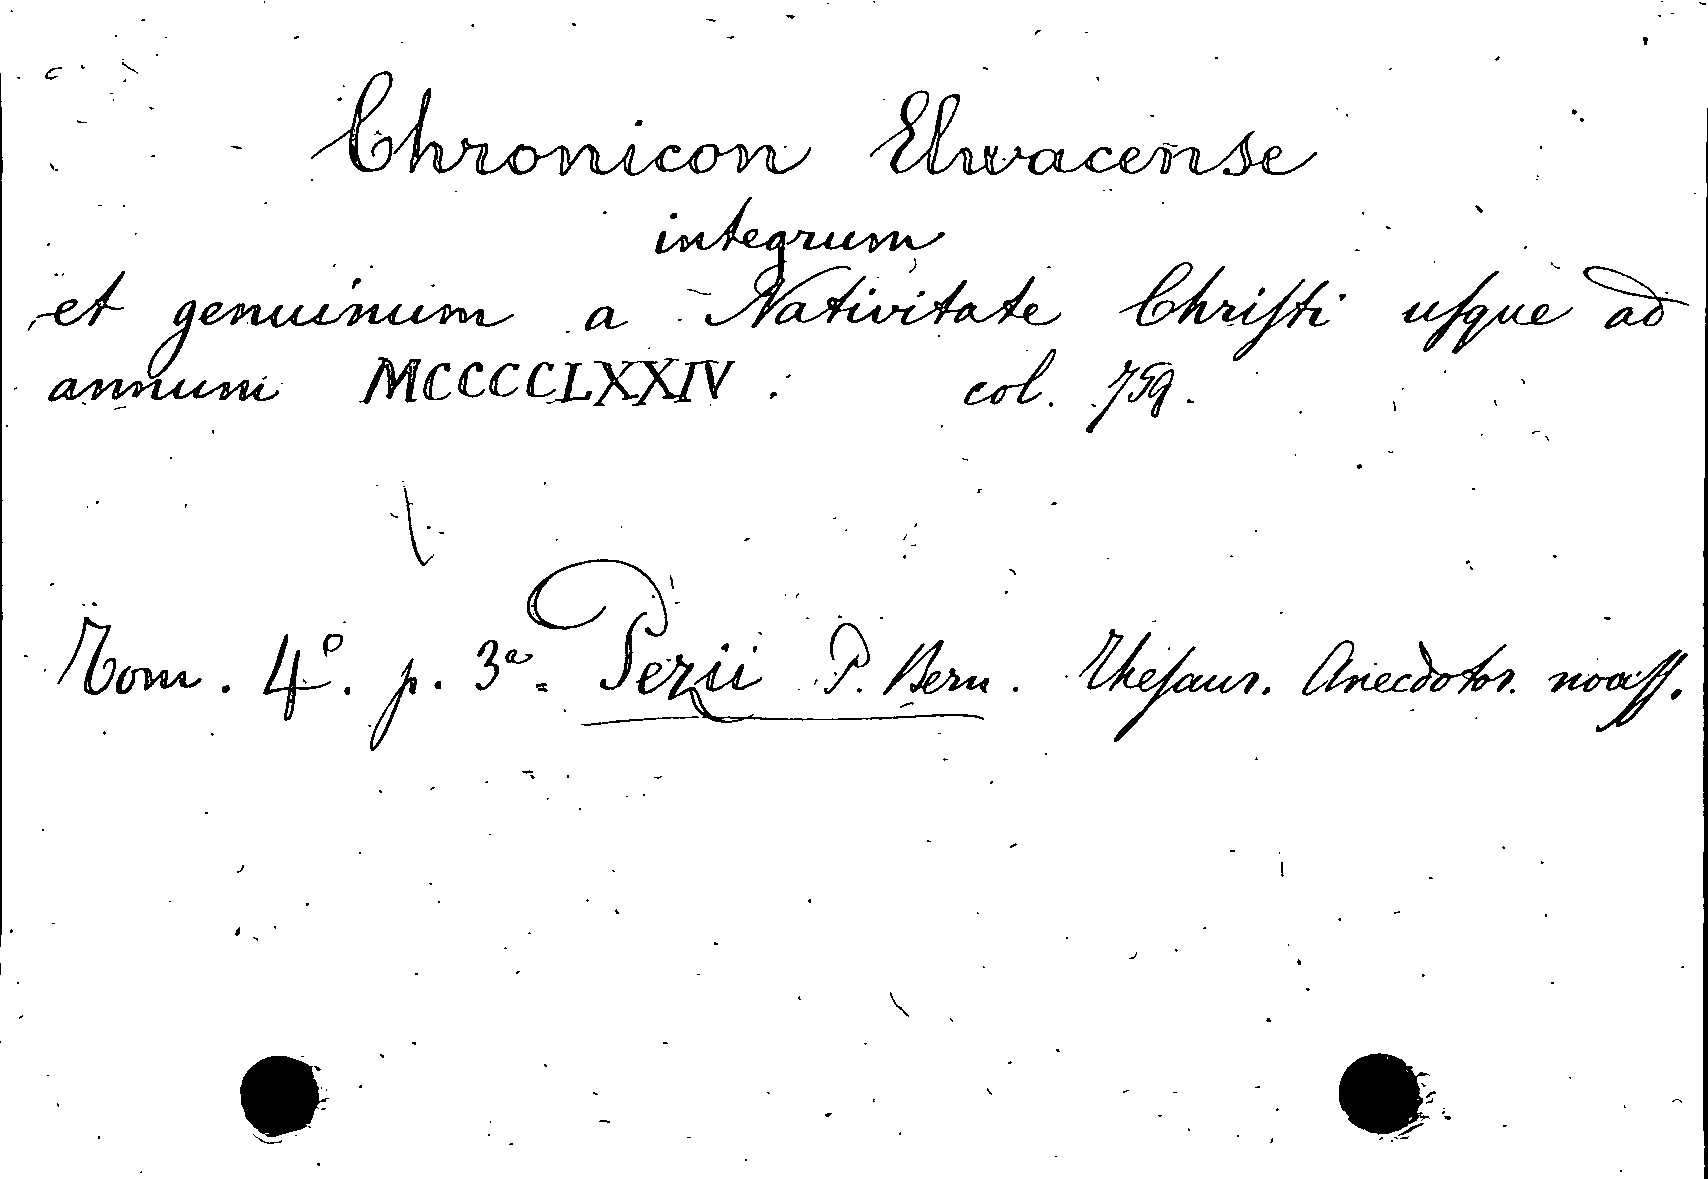 Chronicon Elwacense
integrum
et genuinum a Nativitate Chriſti uſque ad
annum MCCCCCLXXIV. col. 759.
Tom. 4º. p. 3ª. Pezii P. Bern. Theſaur. Anecdotor. noviſſ.